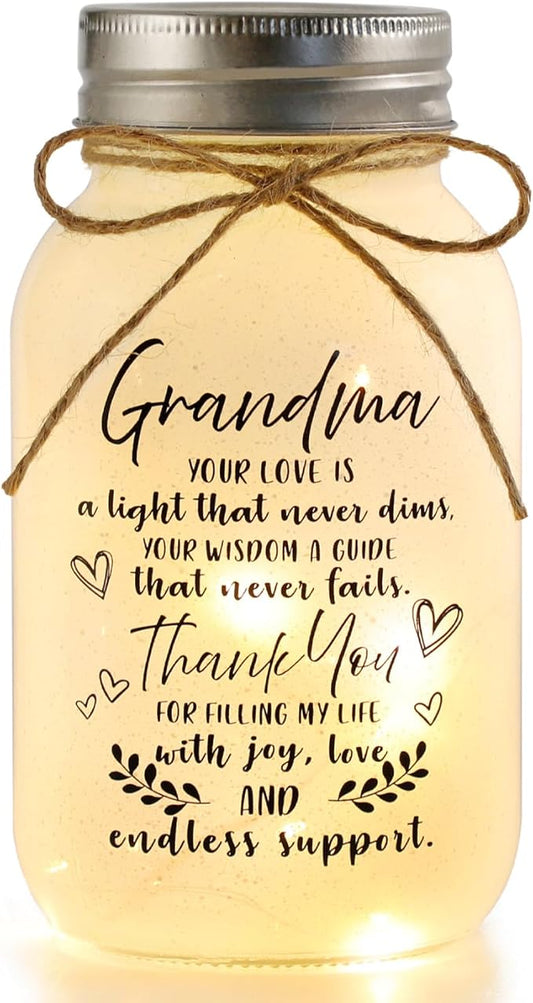 Grandma
YOUR LOVE IS
a light that never dims,
YOUR WISDOM A GUIDE
that never fails.
Thank You
FOR FILLING MY LIFE
with joy, love
AND
endless support.